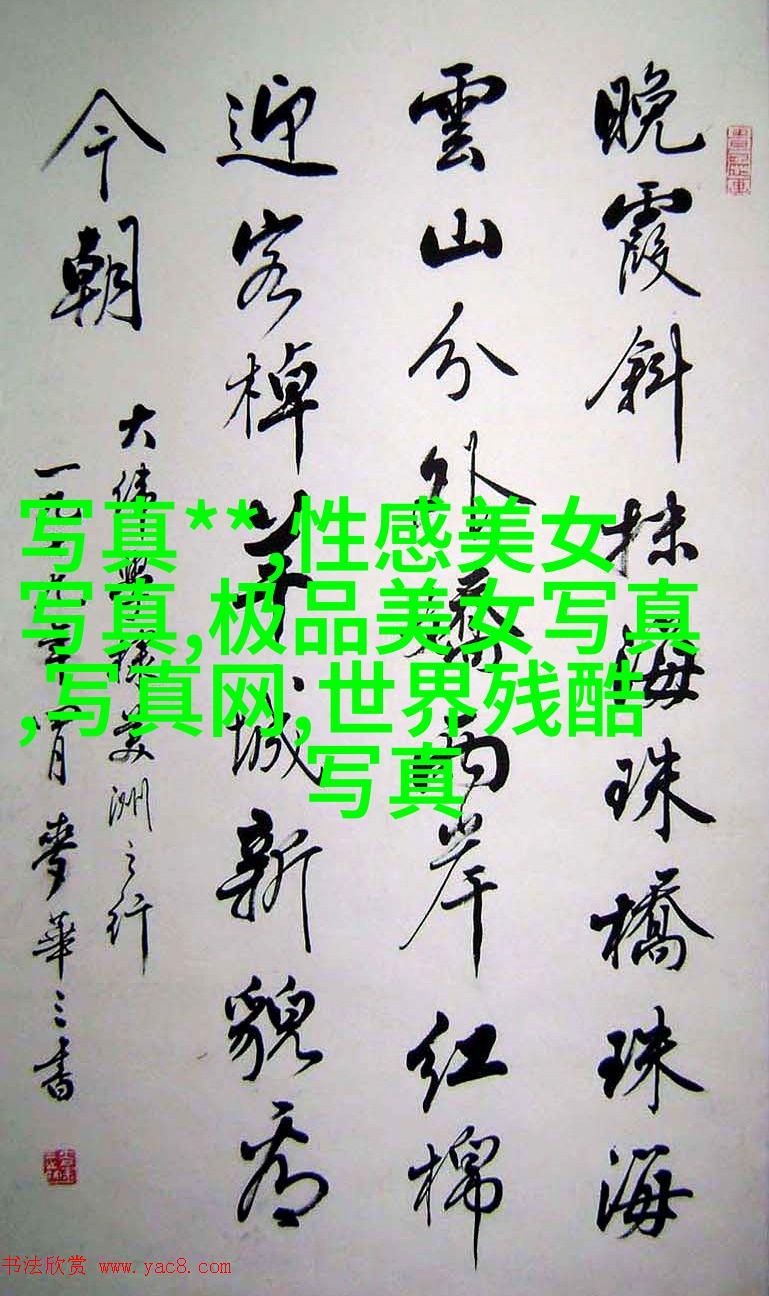 晚霞斜抹海珠橋珠海
雲山分外嬌兩岸紅棉
迎客棹羊城新貌看
今朝
大偉美洲之行
一九年月麥華三書
写真**,性感美女
写真,极品美女写真
,写真网,世界残酷
写真
书法欣赏 www.yac8.com